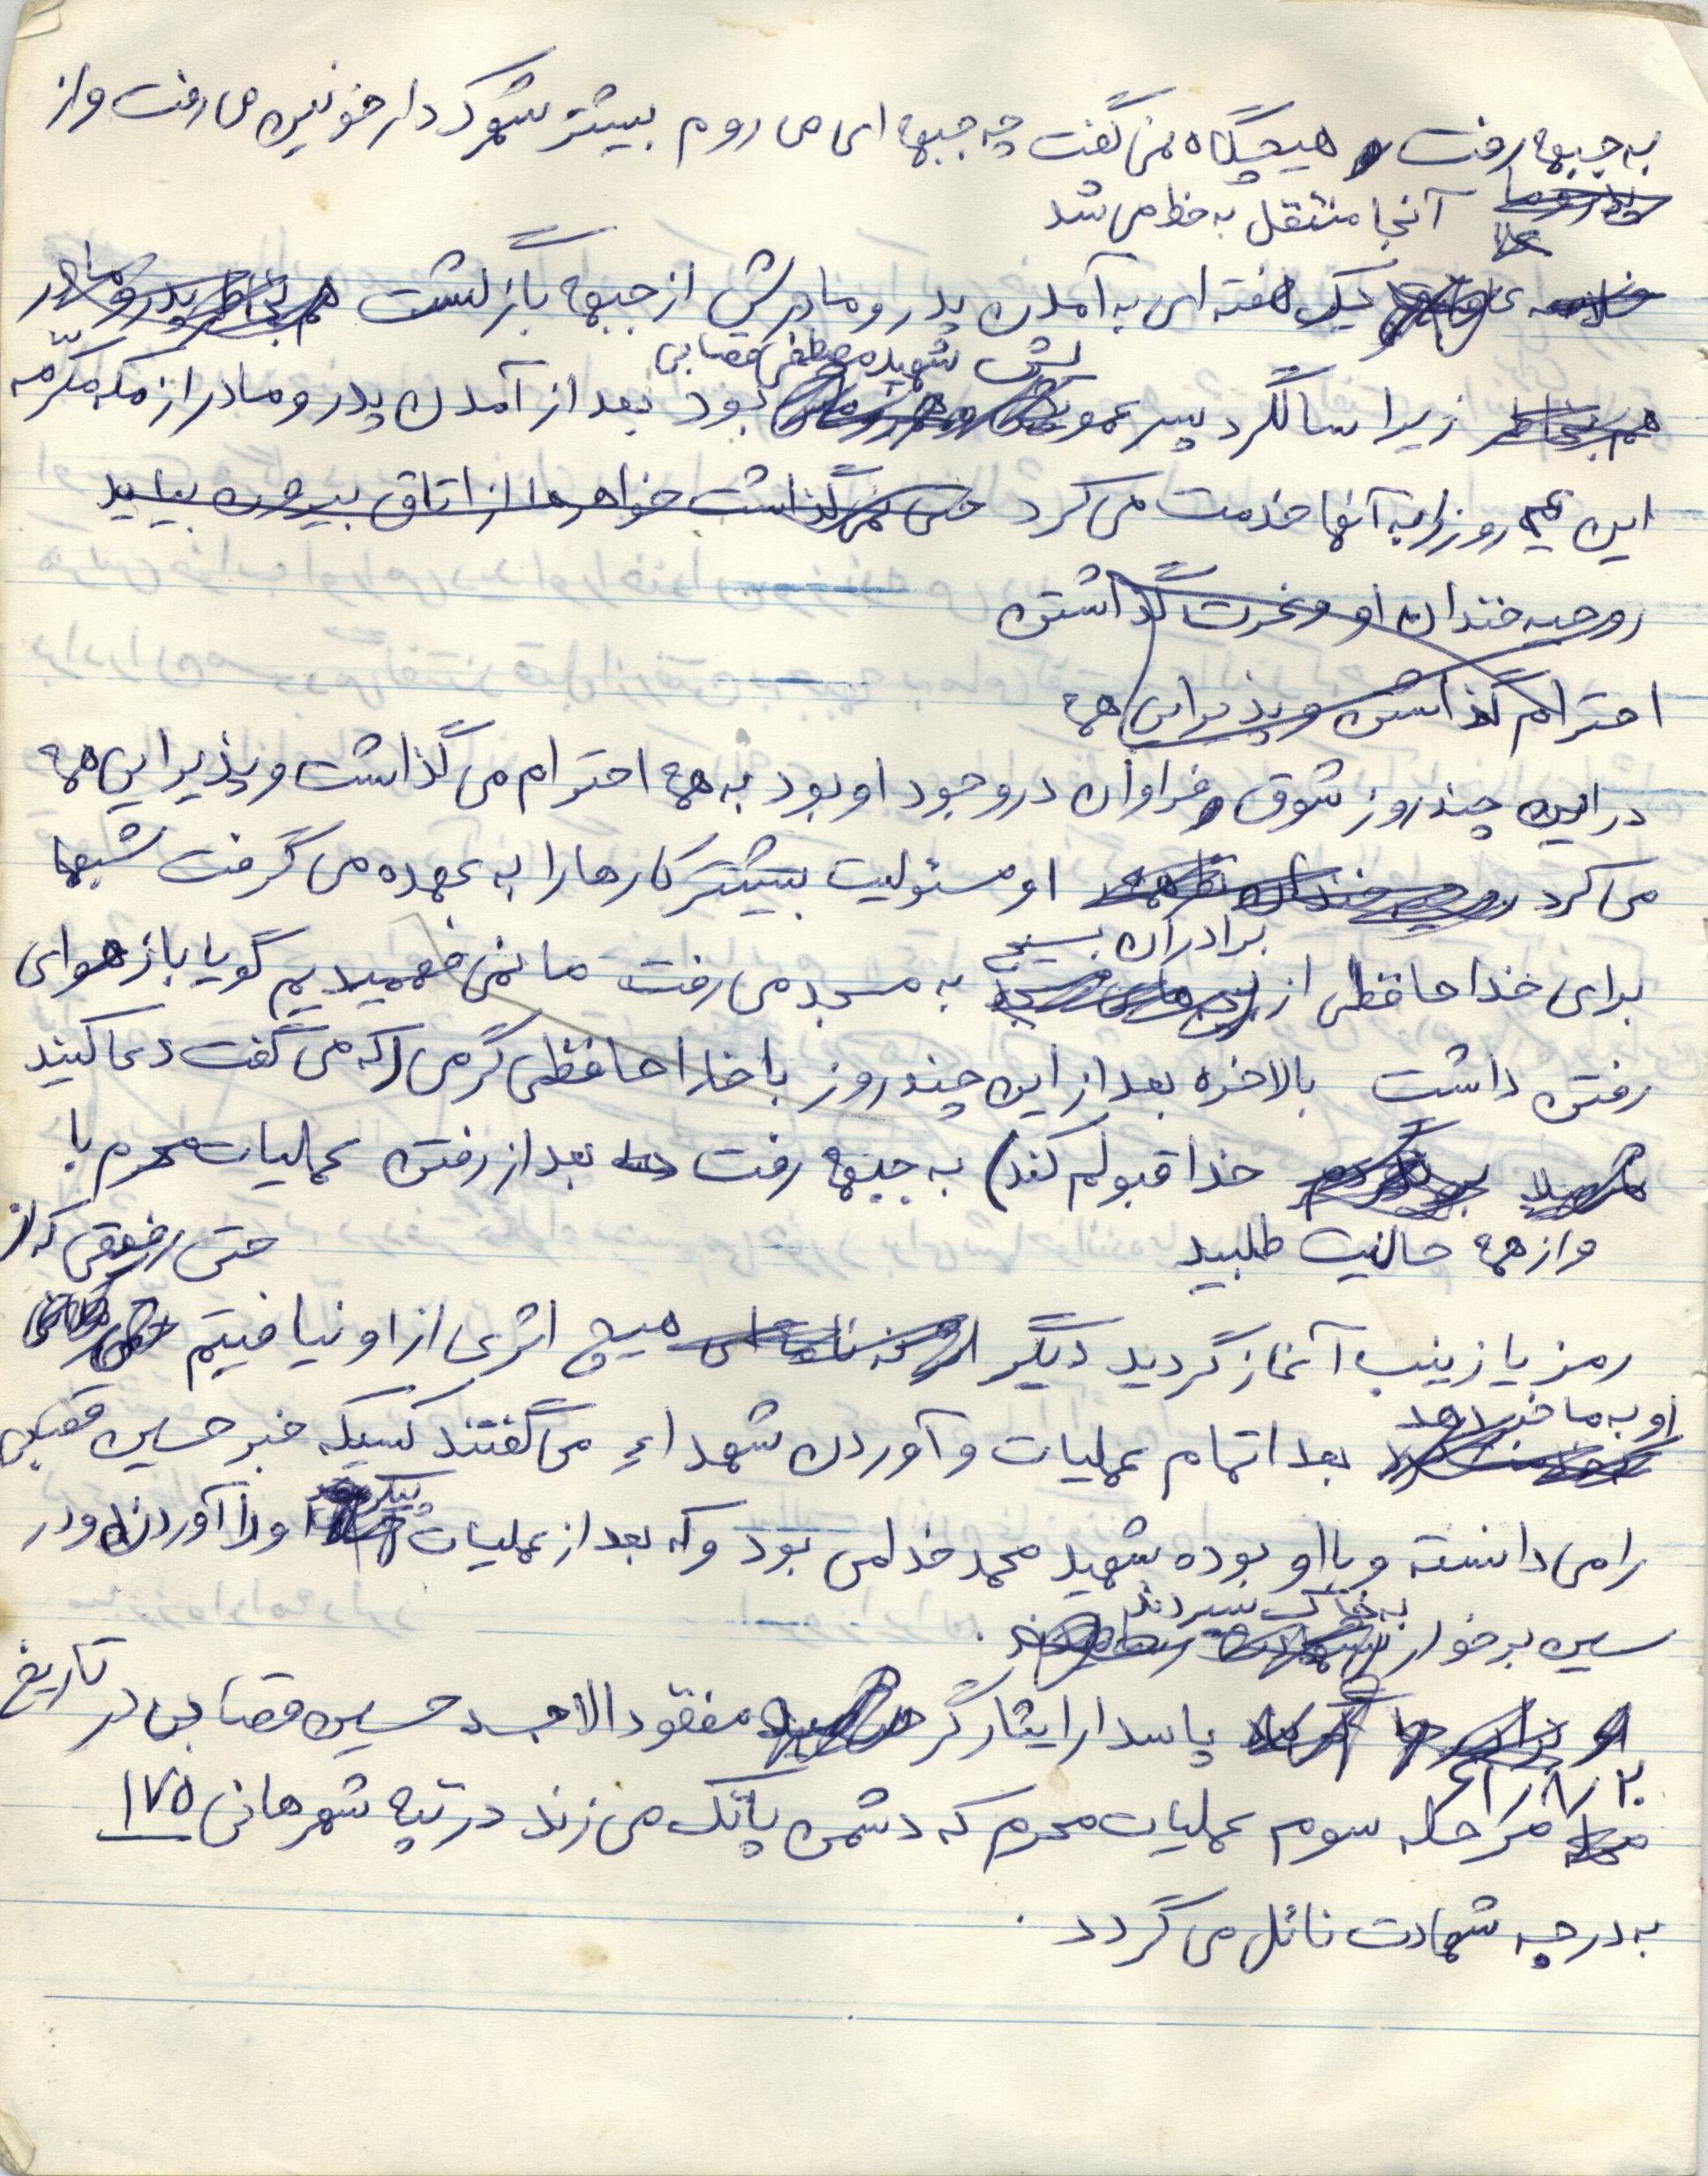 به جبهه رفت و هیچگاه نمی گفت چه جبهه ای می روم بیشتر شهرک دارخوئین می رفت و از
آنجا منتقل به خط می شد
یک هفته ای به آمدن پدر و مادرش از جبهه بازگشت هم بخاطر پدر و مادر
هم بخاطر زیرا سالگرد پسر عمویش شهید مصطفی قصابی بود بعد از آمدن پدر و مادر از مکه مکرّمه
این چند روز را به آنها خدمت می کرد حتی نمی گذاشت خواهرها از اتاق بیرون بیایید
روحیه خندان او و حرمت گذاشتن
احترام گذاشتن و پذیرایی همه
در این چند روز شوق فراوان در وجود او بود به همه احترام می گذاشت و پذیرایی همه
می کرد روحیه خندان او مسئولیت بیشتر کارها را به عهده می گرفت شبها
برای خداحافظی از برادران بسیجی به مسجد می رفت ما نمی فهمیدیم گویا باز هوای
رفتن داشت بالاخره بعد از این چند روز با خداحافظی گرمی (که می گفت دعا کنید
خدا قبولم کند) به جبهه رفت بعد از رفتن عملیات محرم با
و از همه حالیت طلبید
حتی رفیقی که از
رمز یا زینب آغاز گردید دیگر نامه ای هیچ اثری از او نیافتیم
او به ما خبر دهد بعد اتمام عملیات و آوردن شهداء می گفتند کسیکه خبر حسین قصابی
را می دانسته و با او بوده شهید محمد خدامی بود و که بعد از عملیات پیکر او را آوردند و در
سین برخوار به خاک سپردند.
پاسدار ایثارگر مفقود الاجسد حسین قصابی در تاریخ
۶۱/۸/۲۰
مرحله سوم عملیات محرم که دشمن پاتک می زند در تپه شهرهانی ۱۷۵
به درجه شهادت نائل می گردد.